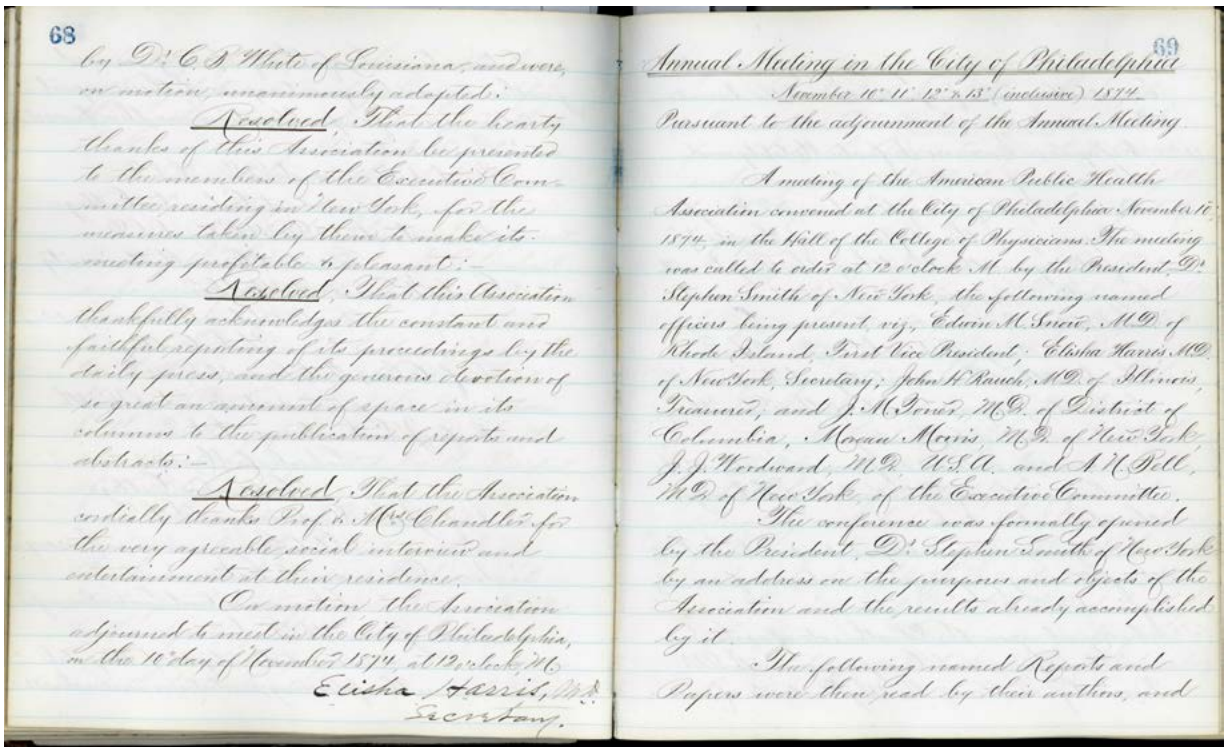 68
by Dr. C B White of Louisiana, and were,
on motion, unanimously adopted:
Resolved, That the hearty
thanks of this Association be presented
to the members of the Executive Com-
mittee, residing in New York, for the
measures taken by them to make its
meeting profitable & pleasant:—
Resolved, That this Association
thankfully acknowledges the constant and
faithful reporting of its proceedings by the
daily press, and the generous devotion of
so great an amount of space in its
columns to the publication of reports and
abstracts:—
Resolved, That the Association
cordially thanks Prof. & Mrs. Chandler for
the very agreeable social interview and
entertainment at their residence.
On motion the Association
adjourned to meet in the City of Philadelphia,
on the 10" day of November 1874, at 12 o'clock, M.
Elisha Harris, M.D.
Secretary.
69
Annual Meeting in the City of Philadelphia
November 10" 11" 12" & 13" (inclusive) 1874.
Pursuant to the adjournment of the Annual Meeting.
A meeting of the American Public Health
Association convened at the City of Philadelphia November 10"
1874, in the Hall of the College of Physicians. The meeting
was called to order at 12 o'clock M. by the President, Dr.
Stephen Smith of New York, the following named
officers being present, viz., Edwin M. Snow, M.D. of
Rhode Island, First Vice President; Elisha Harris M.D.
of New York, Secretary; John H Rauch, M.D. of Illinois,
Treasurer, and J. M Toner, M.D. of District of
Columbia, Moreau Morris, M.D. of New York,
J. J. Woodward, M.D. U.S.A. and A. N. Bell,
M.D of New York, of the Executive Committee.
The conference was formally opened
by the President, Dr. Stephen Smith of New York
by an address on the purposes and objects of the
Association and the results already accomplished
by it.
The following named Reports and
Papers were then read by their authors, and